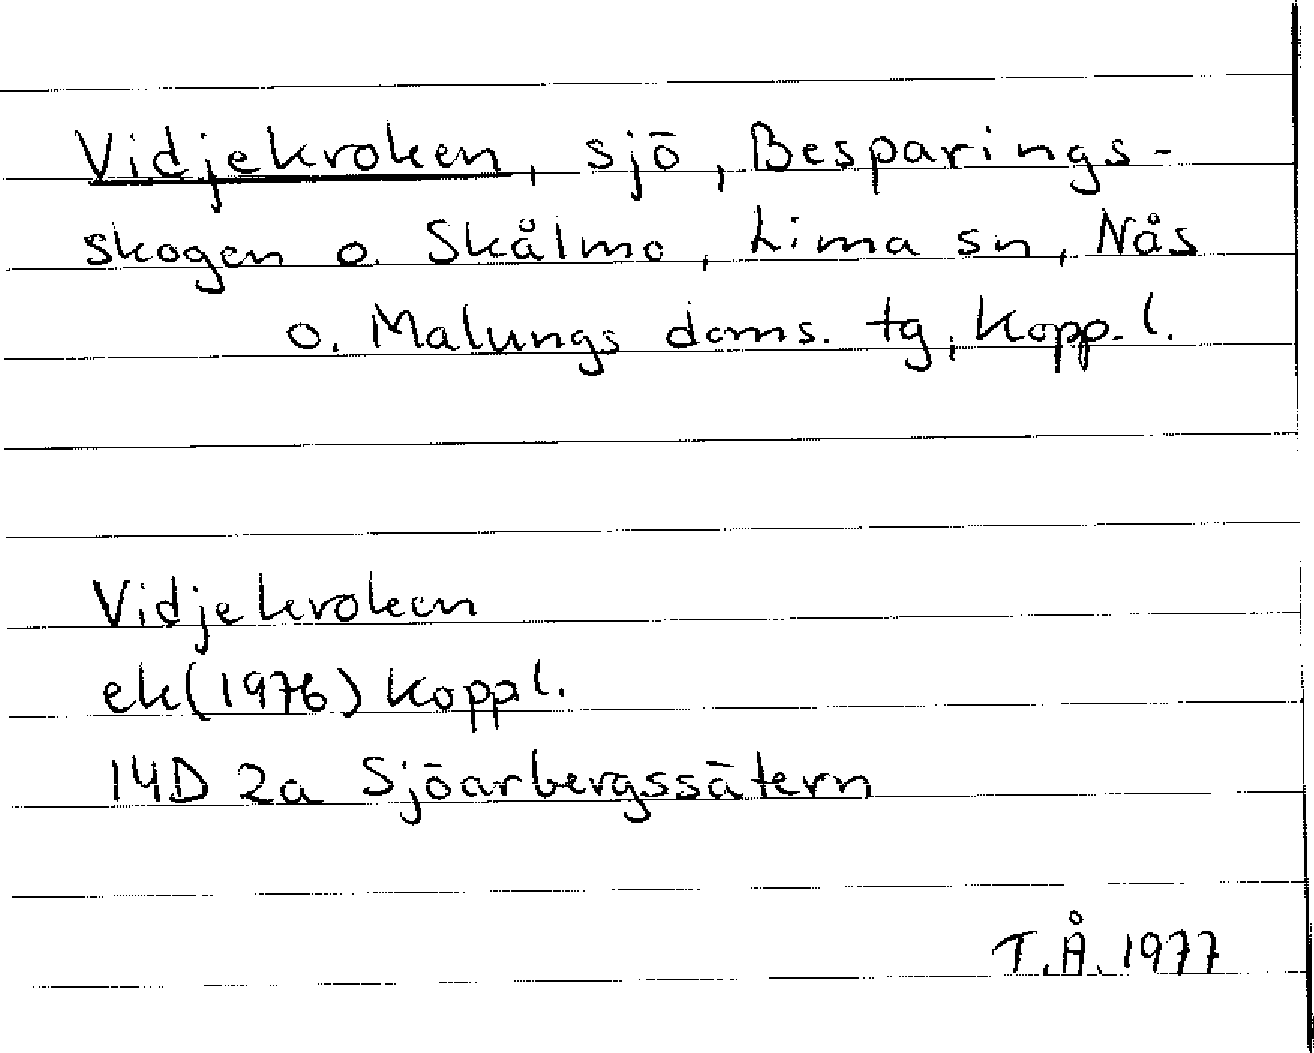 Vidjekroken, sjö, Besparings-
skogen o. Skålmo, Lima sn, Nås
o. Malungs doms. tg, Kopp. l.
Vidjekroken
ek(1976) Koppl.
14D 2a Sjöarbergssätern
T.Å. 1977